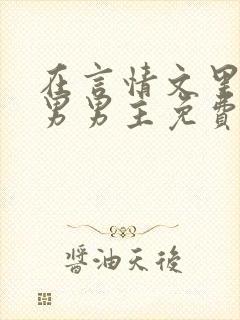 在言情文里
男男主免費
醬油天後